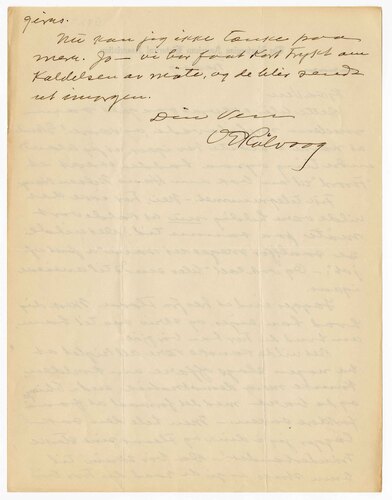 gives.
Nu kan jeg ikke tænke paa
mere. Jo - vi har faat kort trykt om
Kaldelsen av møte, og de blir sendt
ut imorgen.
Din Ven
O E Rølvaag